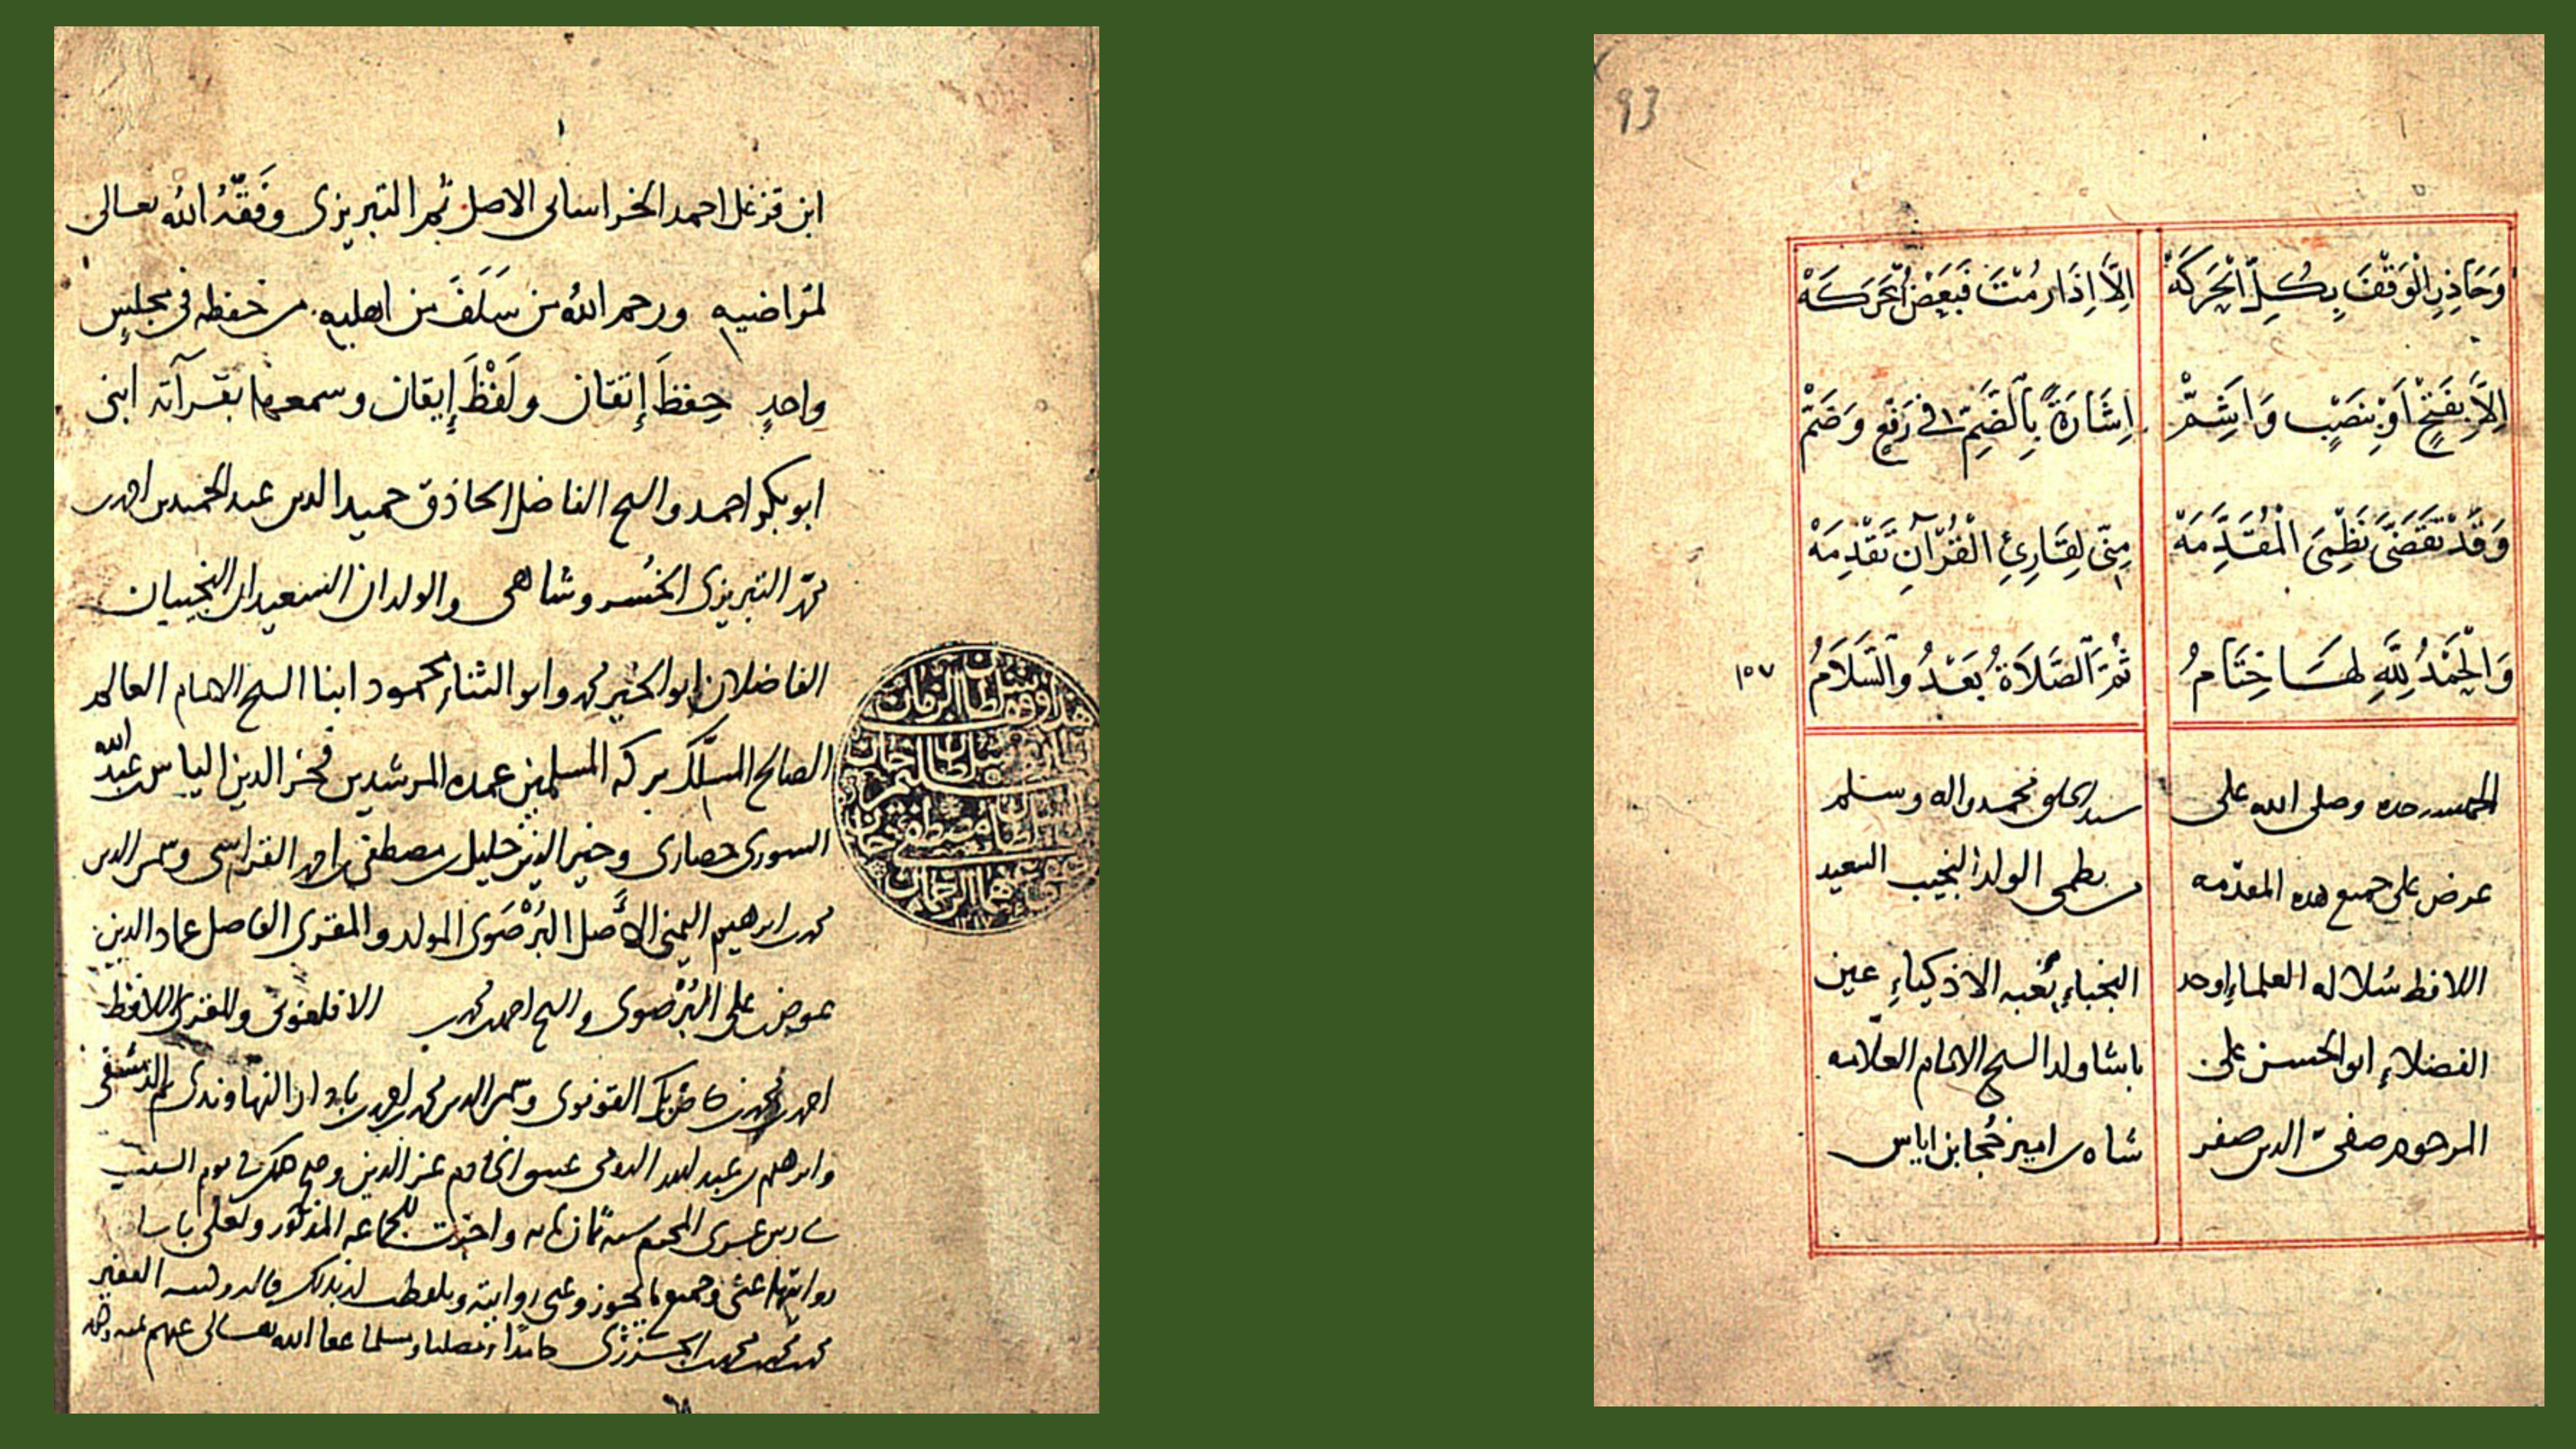 93
وَحَاذِرِ الْوَقْفَ بِكُلِّ الْحَرَكَهْ إِلَّا إِذَا رُمْتَ فَبَعْضُ الْحَرَكَهْ
إِلَّا بِفَتْحٍ أَوْ بِنَصْبٍ وَأَشِمّْ إِشَارَةً بِالضَّمِّ فِي رَفْعٍ وَضَمّْ
وَقَدْ تَقَضَّى نَظْمِيَ الْمُقَدِّمَهْ مِنِّي لِقَارِئِ الْقُرْآنِ تَقْدِمَهْ
وَالْحَمْدُ لِلَّهِ لَهَا خِتَامُ ثُمَّ الصَّلَاةُ بَعْدُ وَالسَّلَامُ
١٥٧
الحمد لله وحده وصلى الله على سيد الخلق محمد واله وسلم
عرض علي جميع هذه المقدمه من نظمي الولد النجيب السعيد
اللافظ سُلاله العلماء اوحد النجباء نُخبه الاذكياءِ عين
الفضلاءِ ابو الحسن على باشا ولد الشيخ الامام العلامه
المرحوم صفيّ الدين صفر شاه بن امير خُجا بن اياس
ابن قزغل احمد الخراساني الاصل ثم التبريزي وفَّقَهُ الله تعالى
لمراضيه ورحم الله من سَلَفَ من اهليه من حفظه في مجلسٍ
واحدٍ حِفظَ إتقان ولَفْظَ إيقان وسمعها بقراته ابنى
ابو بكر احمد والشيخ الفاضل الحاذق حميد الدين عبد الحميد بن احمد بن
محمد التبريزي الخُسروشاهي والولدان السعيدان النجيبان
الفاضلان ابو الخير محمد وابو الثناء محمود ابنا الشيخ الامام العالم
الصالح المسلّك بركه المسلمين عمده المرشدين فخر الدين الياس بن عبد الله
السوري حصاري وخير الدين خليل بن مصطفى بن احمد القراسي وشمس الدين
محمد بن ابرهيم اليمني الأصل البُرْصَوى المولد والمقرى الفاضل عماد الدين
عوض على البُرْصوى والشيخ احمد بن محمد بن الافلغوني والمقرى اللافظ
احمد بن محمد بن القونوى وشمس الدين محمد بن احمد بن النهاوندى ثم الدمشقي
وابرهيم بن عبد الله الخادم عز الدين وصح ذلك في يوم السبت
سادس عشرى المحرم سنه ثمان مايه واجزت للجماعه المذكور ولعلى باشا
روايتها عنى وجميع ما يجوز وعنى روايته وتلفظت له بذلك قاله وكتبه الفقير
محمد بن محمد بن محمد بن الجزرى حامدًا ومصليا ومسلما عفا الله تعالى عنهم